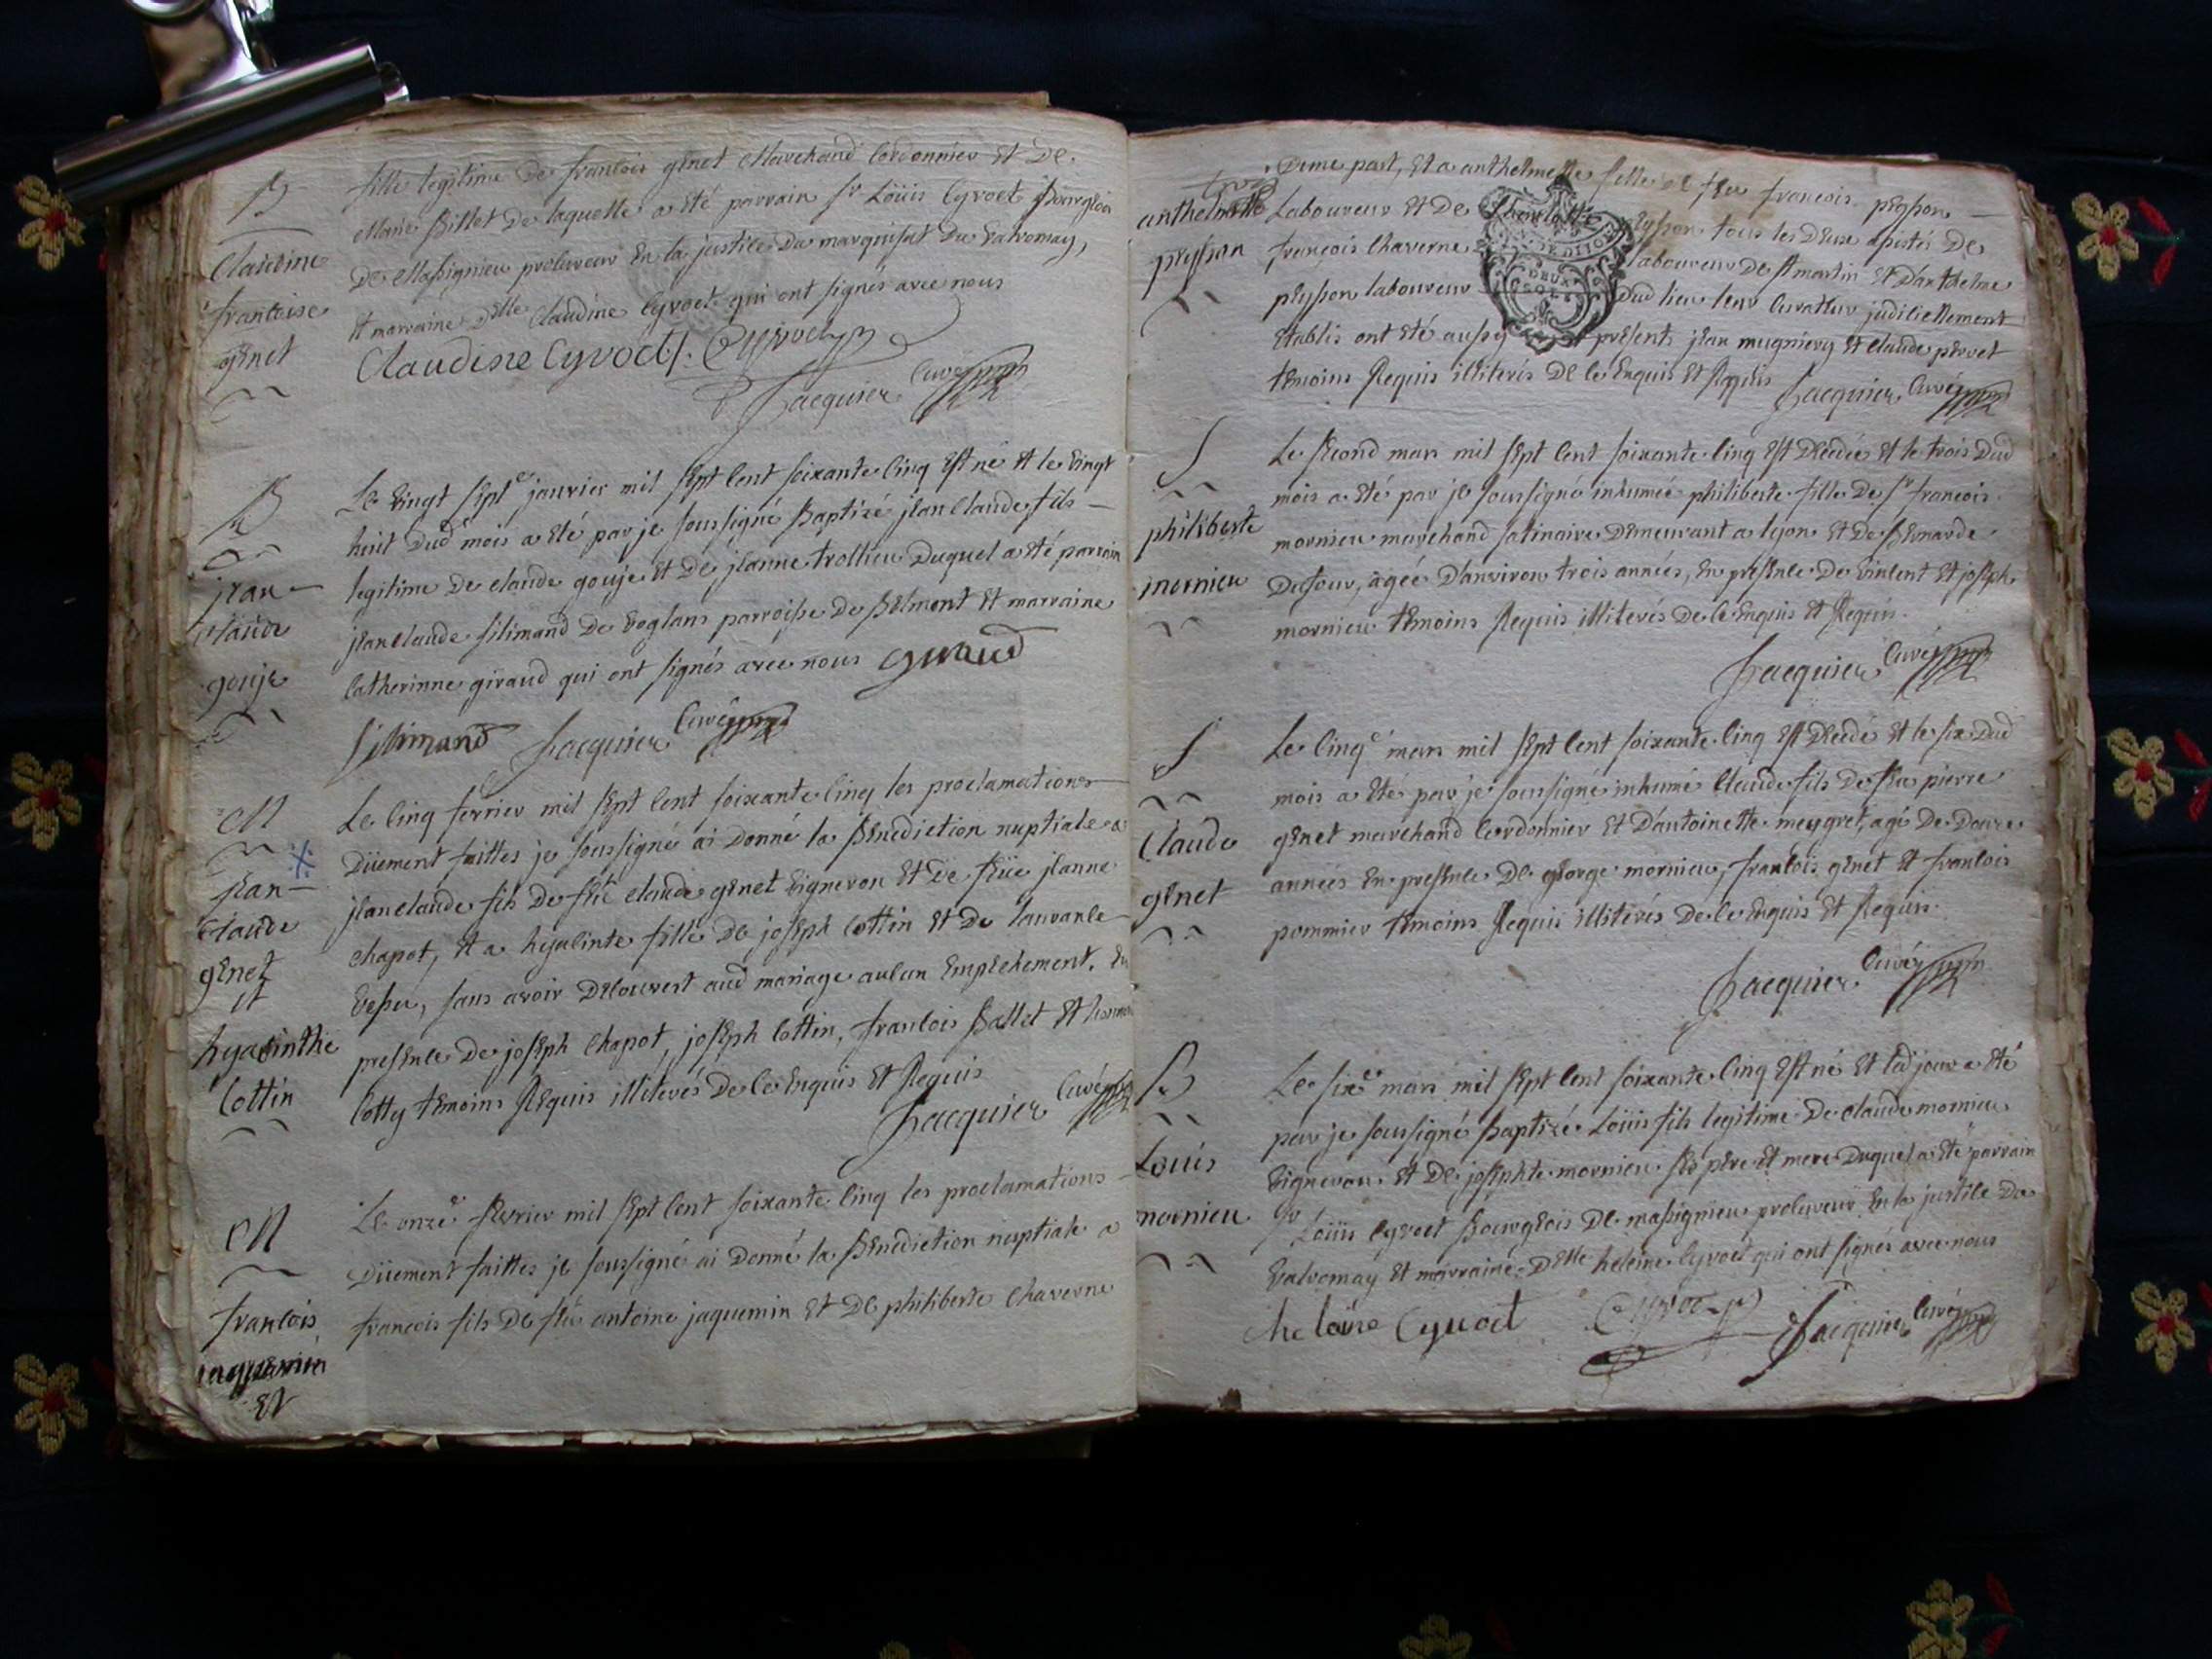 B
Claudine
francoise
genet
fille legitime de francois genet Marchand Cordonnier et de
Marie Billet de laquelle a été parrain sr Loüis Cyvoct Bourgeois
de Massignieu procureur en la justice du marquisat du valromay,
et marraine delle Claudine Cyvoct qui ont signés avec nous
Claudine Cyvoct Cyvoct
Jacquier Curé
B
jean
claude
gouje
Le vingt septe janvier mil sept cent soixante cinq est né et le vingt
huit dud mois a été par je soussigné Baptizé jean Claude fils
legitime de claude gouje et de jeanne trollieu duquel a été parrain
jean Claude silimand de voglans parroisse de Belmont et marraine
Catherinne giraud qui ont signés avec nous Giraud
Silimand Jacquier Curé
M
jean
claude
genet
et
hyacinthe
Cottin
Le cinq fevrier mil sept cent soixante cinq les proclamations
düement faittes je soussigné ai donné la Benediction nuptiale a
jean claude fils de feu claude genet vigneron et de feüe jeanne
chapot, et a hyacinte fille de joseph Cottin et de laurance
vepeu, sans avoir decouvert aud mariage aucun empechement. En
presence de joseph Chapot, joseph Cottin, francois Ballet et
Cotty temoins Requis illiterés de ce enquis et Requis
Jacquier Curé
M
francois
jaquemin
et
Le onzee fevrier mil sept cent soixante cinq les proclamations
düement faittes je soussigné ai donné la Benediction nuptiale a
francois fils de feu antoine jaquemin et de philiberte Chaverne
anthelmette
peysson
d'une part, et a anthelmette fille de feu francois peysson
Laboureur et de peysson tous les deux assistés de
françois Chaverne laboureur de st martin et d'anthelme
peysson laboureur dud lieu leur Curateur judiciellement
etablis ont été aussy presents jean mugniery et claude pervet
temoins Requis illiterés de ce enquis et Requis Jacquier Curé
S
philiberte
mornieu
Le second mars mil sept cent soixante cinq est decedée et le trois dud
mois a été par je soussigné inhumée philiberte fille de sr francois
mornieu marchand satinaire demeurant a lyon et de Bernarde
Dufour, agée d'anviron trois années, en presence de vincent et joseph
mornieu temoins Requis illiterés de ce enquis et Requis
Jacquier Curé
S
Claude
genet
Le cinqe mars mil sept cent soixante cinq est decedé et le six dud
mois a été par je soussigné inhumé Claude fils de feu pierre
genet marchand Cordonnier et d'antoinette meygret, agé de douze
années en presence de george mornieu, francois genet et francois
pommier temoins Requis illiterés de ce enquis et Requis
Jacquier Curé
B
Louis
mornieu
Le sixe mars mil sept cent soixante cinq est né et led jour a été
par je soussigné baptizé Loüis fils legitime de claude mornieu
vigneron et de josephte mornieu ses pere et mere duquel a été parrain
sr Loüis Cyvoct Bourgeois de massignieu procureur en la justice du
valromay et marraine delle heleine Cyvoct qui ont signés avec nous
heleine Cyvoct Cyvoct Jacquier Curé